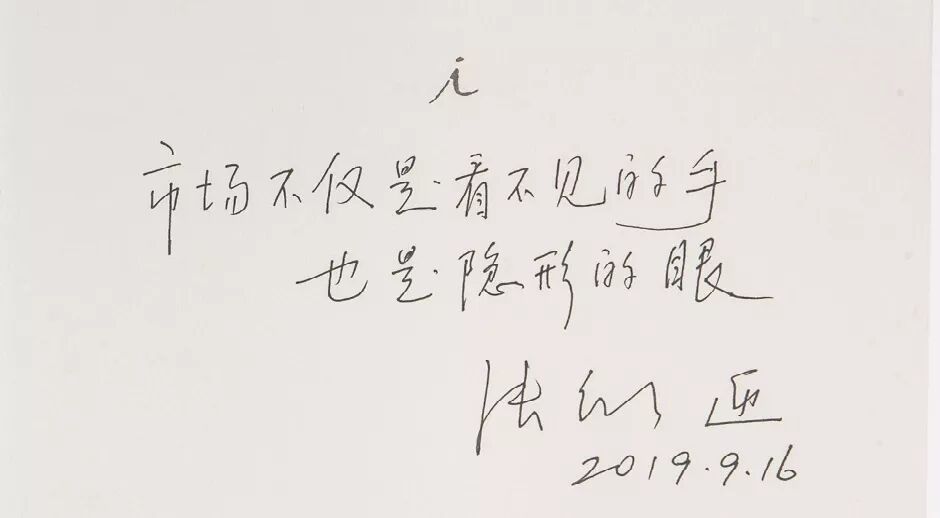 i
市场不仅是看不见的手
也是隐形的眼
张维迎
2019.9.16